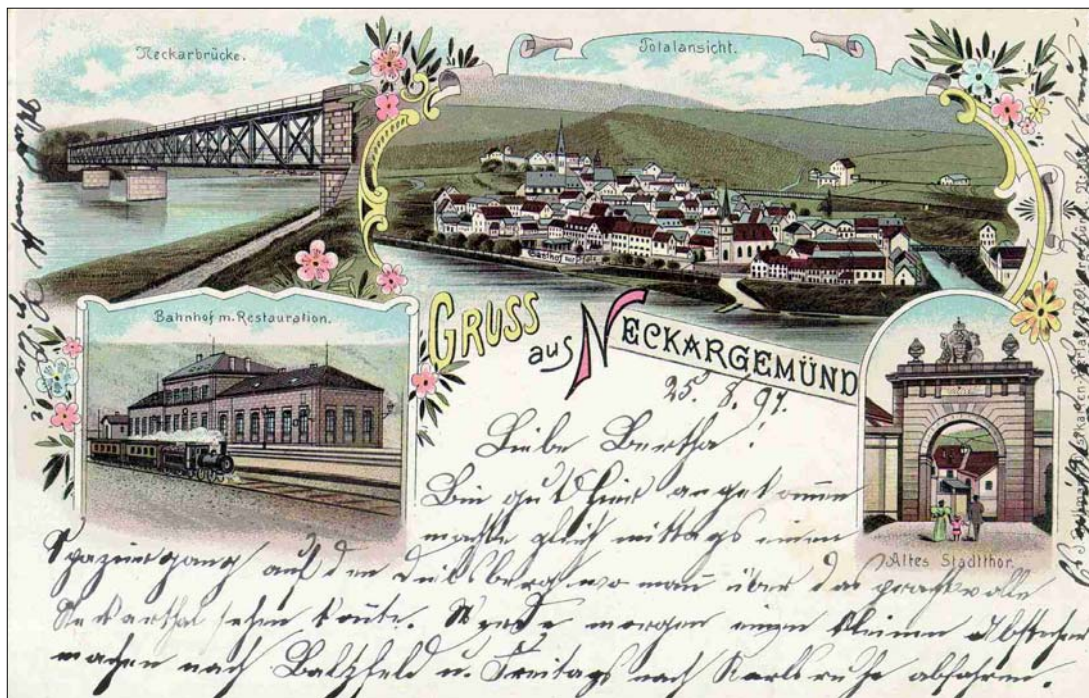 Neckarbrücke.
Totalansicht.
Gasthof zur Pfalz
Bahnhof m. Restauration.
GRUSS
aus NECKARGEMÜND
Altes Stadtthor.
25. 8. 97.
Liebe Bertha!
Bin gut hier angekommen
machte gleich mittags einen
Spaziergang auf den Dilsberg wo man über das prachtvolle
Neckarthal sehen konte. Werde morgen einen kleinen Abstecher
machen nach Baltzfeld u. Freitags nach Karlsruhe abfahren.